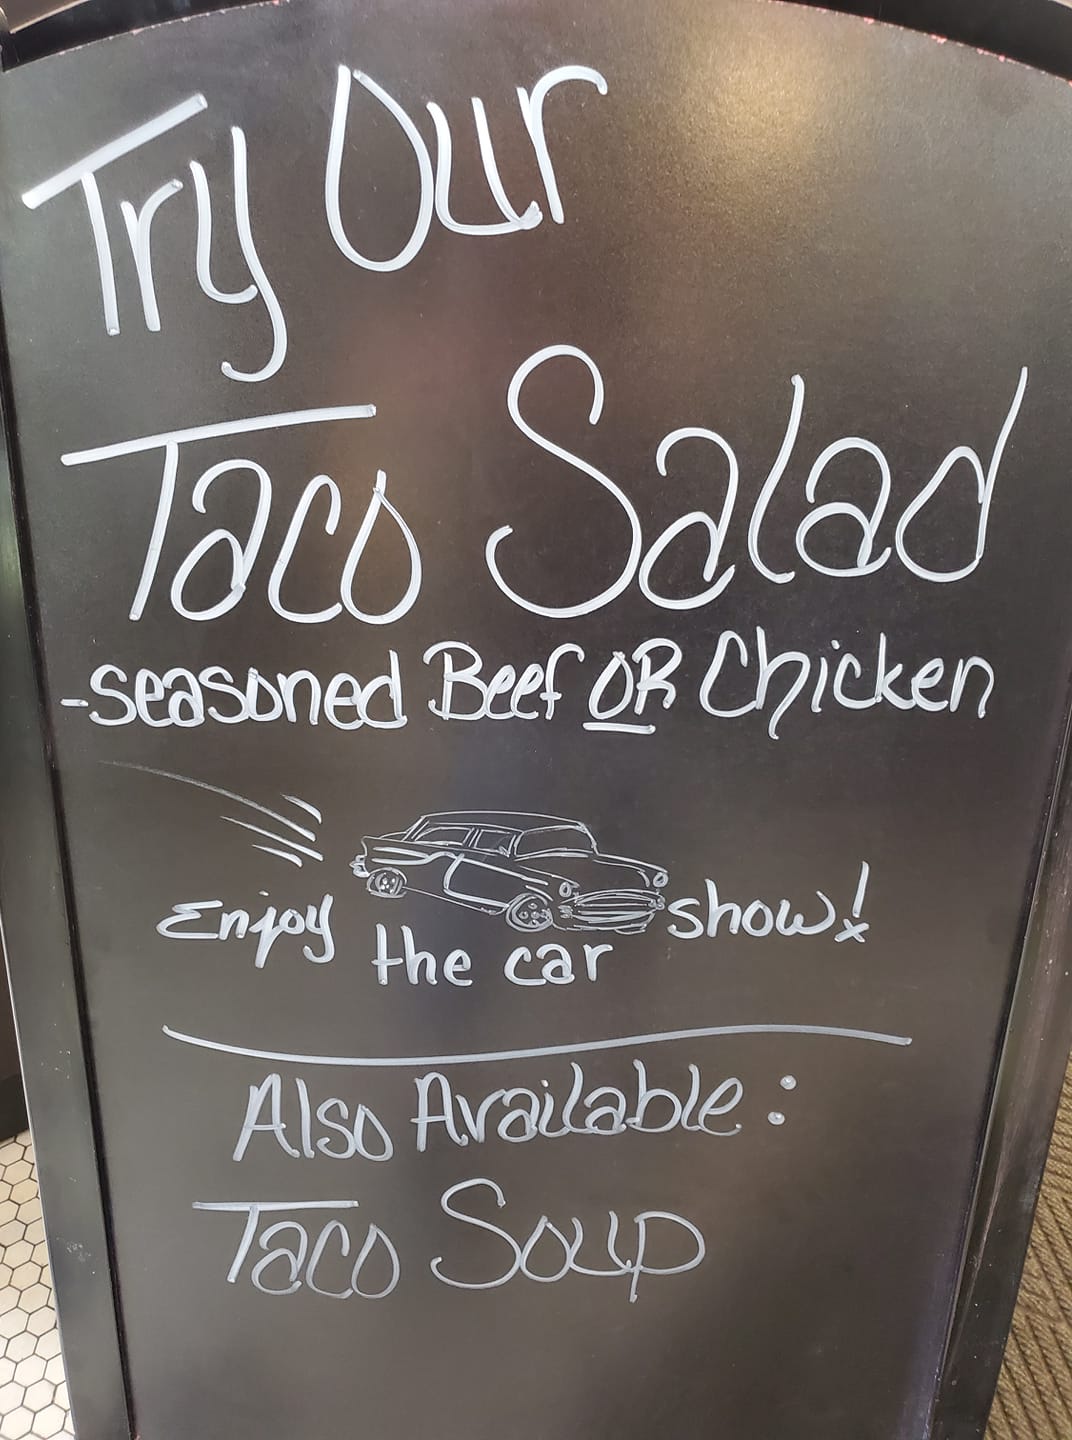 Try Our
Taco Salad
-seasoned Beef OR Chicken
Enjoy the car show!
Also Available:
Taco Soup